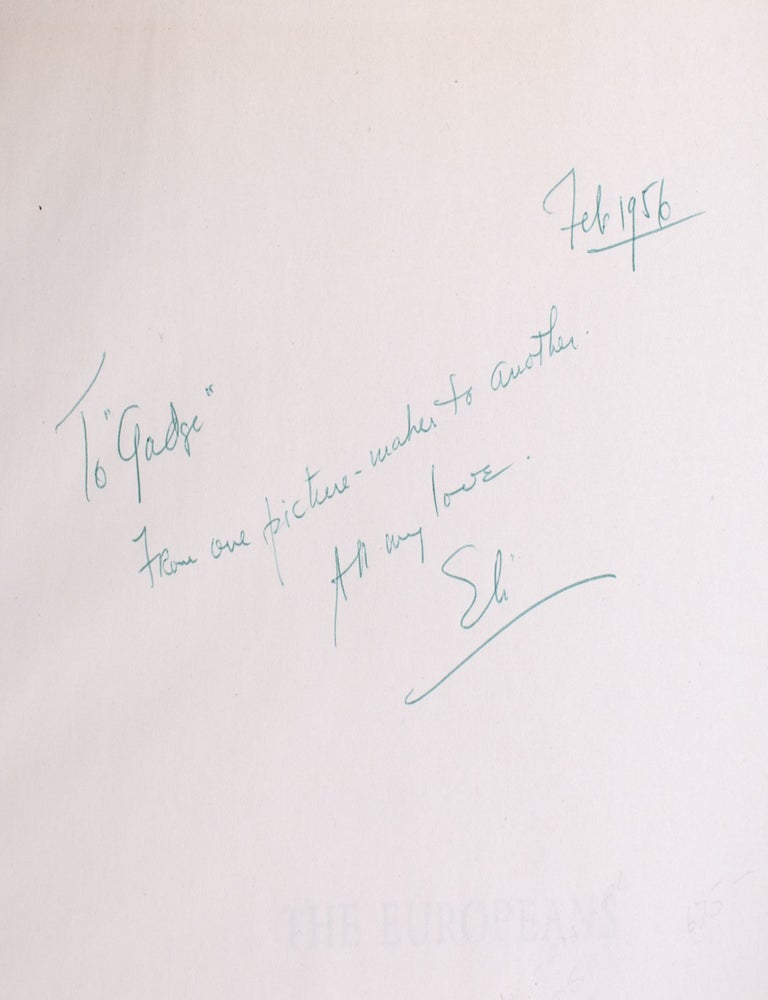 Feb 1956
To "Gadge"
From one picture-maker to another.
All my love.
Eli
THE EUROPEANS
675